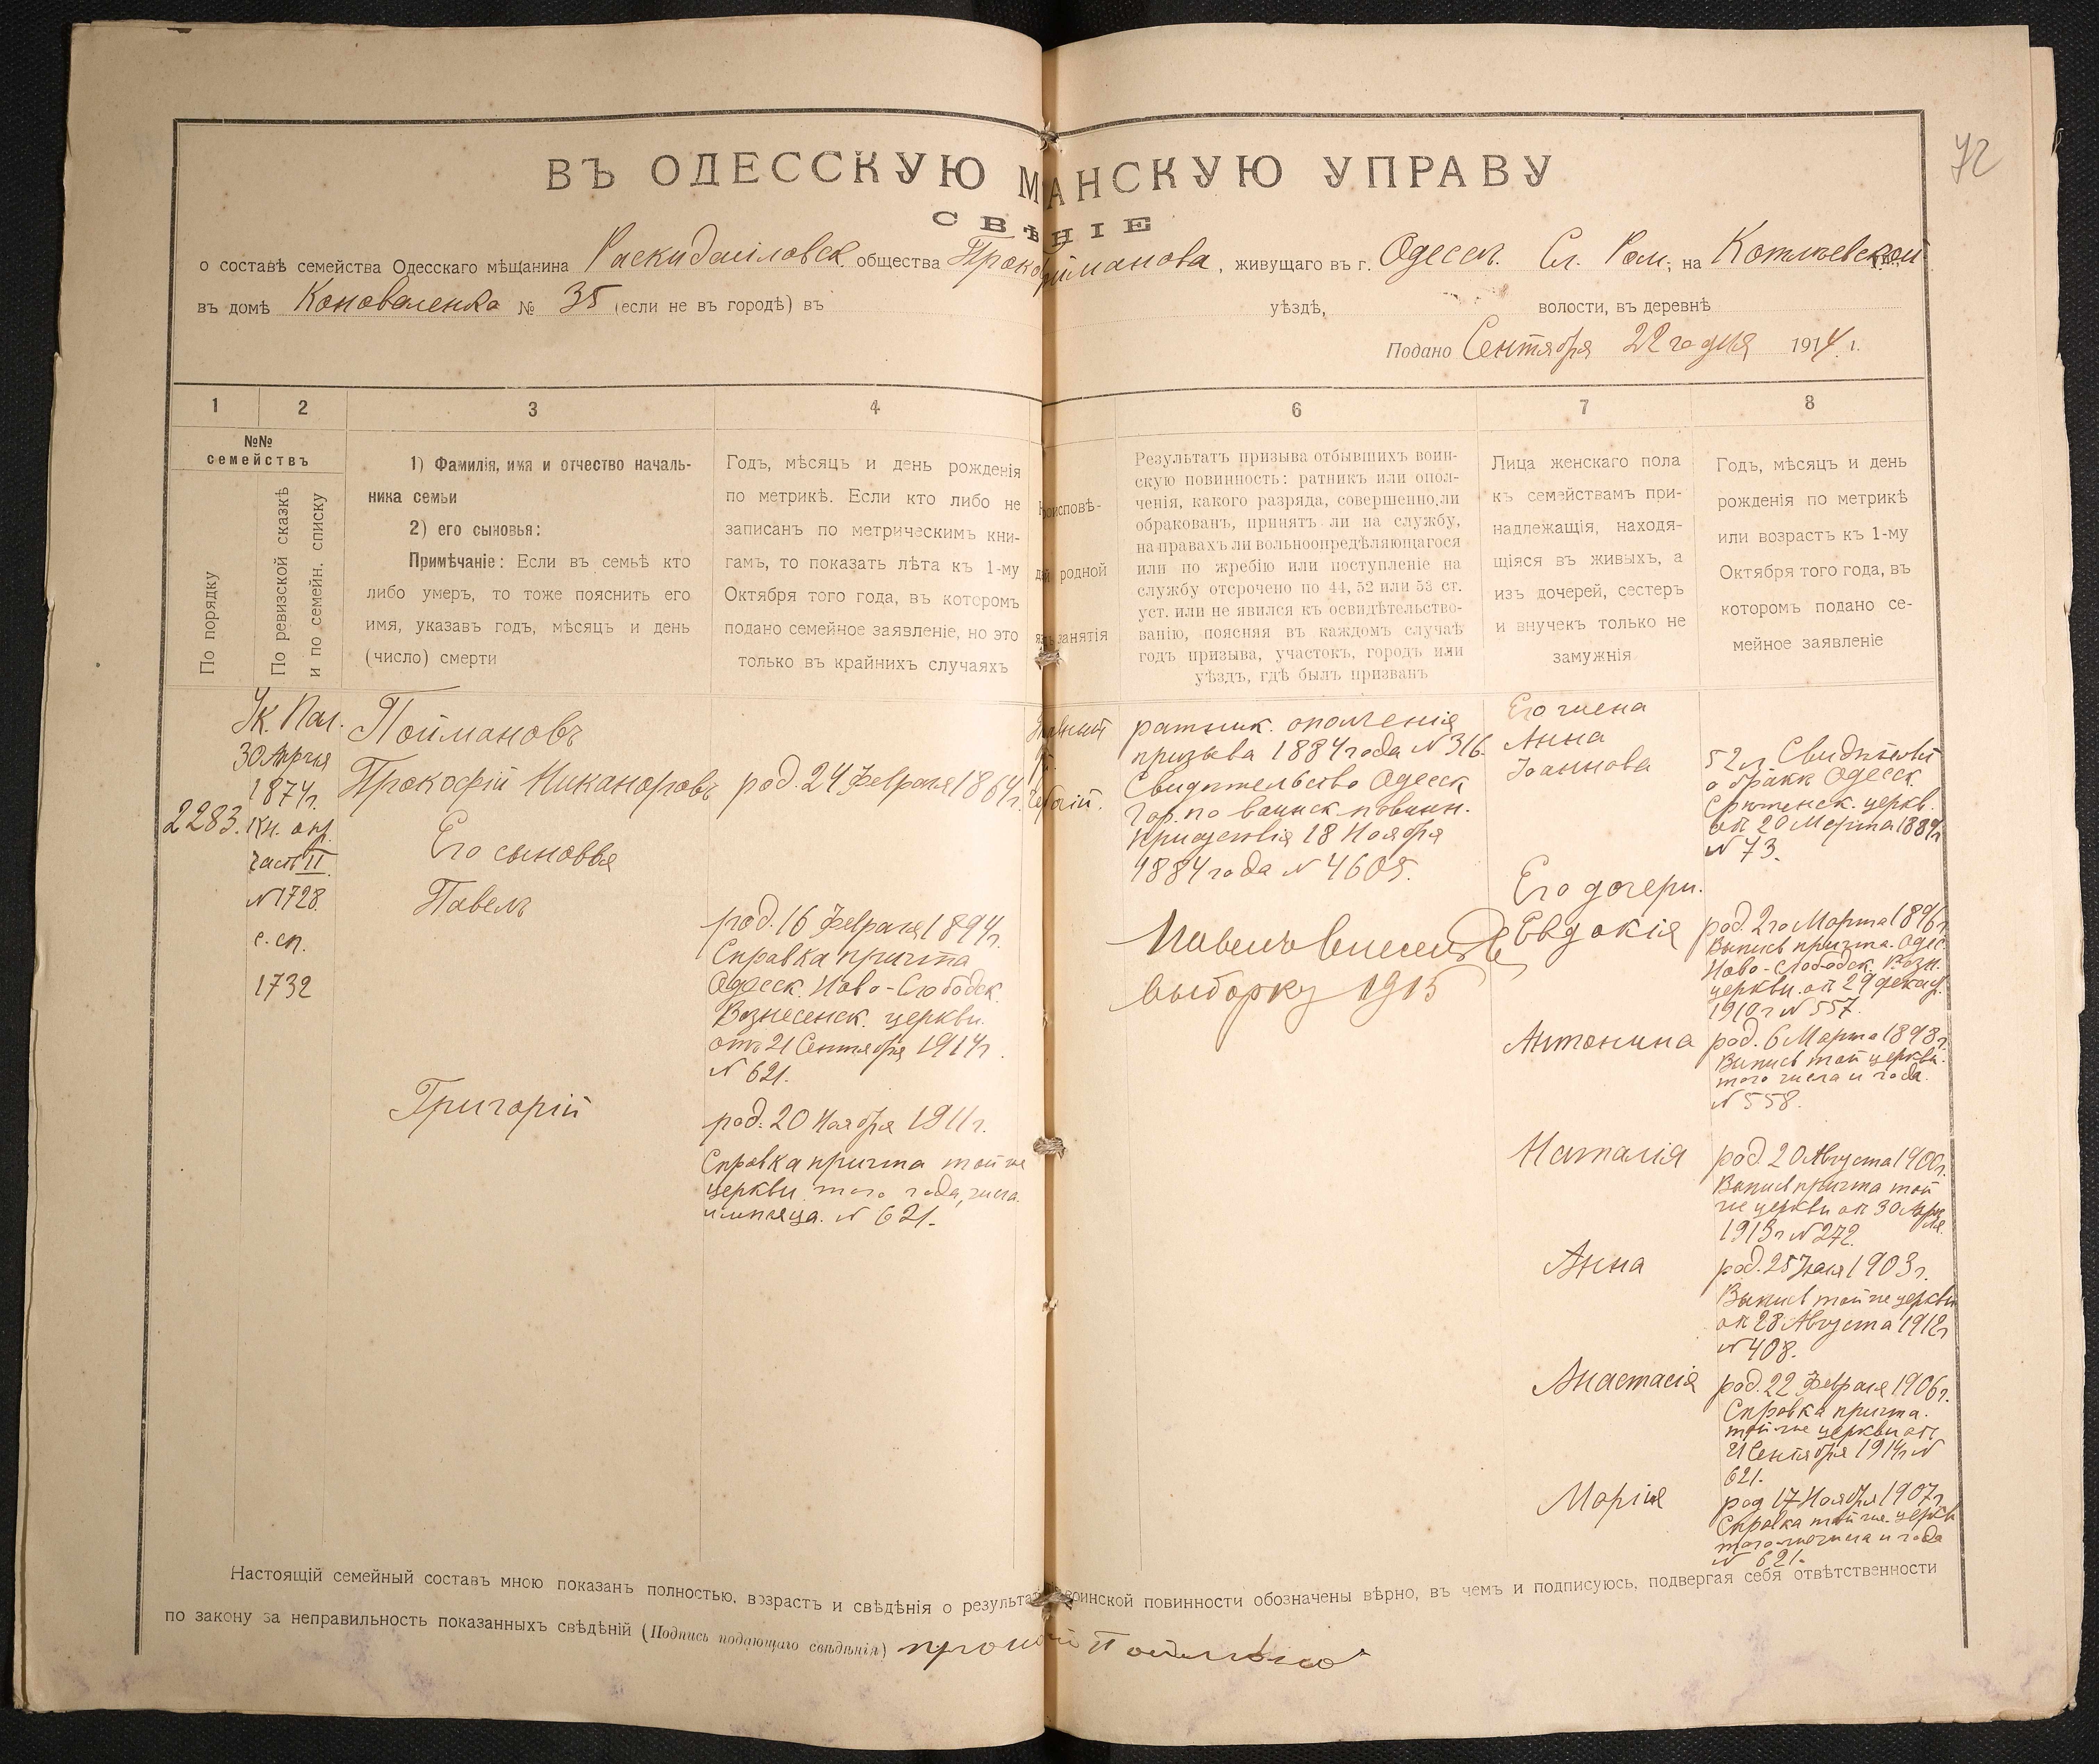 72
ВЪ ОДЕССКУЮ МАНСКУЮ УПРАВУ
СВѢНІЕ
о составѣ семейства Одесскаго мѣщанина Раскидайловск. общества Прокофійманова, живущаго въ г. Одессѣ. Сл. Ром., на
въ домѣ Коноваленко № 35 (если не въ городѣ) въ уѣздѣ, волости, въ деревнѣ
Подано Сентября 22 го дня 1914 г.
1 2 3 4 6 7 8
№№
семействъ
По порядку
По ревизской сказкѣ
и по семейн. списку
1) Фамилія, имя и отчество началь-
ника семьи
2) его сыновья:
Примѣчаніе: Если въ семьѣ кто
либо умеръ, то тоже пояснить его
имя, указавъ годъ, мѣсяцъ и день
(число) смерти
Годъ, мѣсяцъ и день рожденія
по метрикѣ. Если кто либо не
записанъ по метрическимъ кни-
гамъ, то показать лѣта къ 1-му
Октября того года, въ которомъ
подано семейное заявленіе, но это
только въ крайнихъ случаяхъ
исповѣ-
родной
занятія
Результатъ призыва отбывшихъ воин-
скую повинность: ратникъ или опол-
ченія, какого разряда, совершенно ли
обракованъ, принятъ ли на службу,
на правахъ ли вольноопредѣляющагося
или по жребію или поступленіе на
службу отсрочено по 44, 52 или 53 ст.
уст. или не явился къ освидѣтельство-
ванію, поясняя въ каждомъ случаѣ
годъ призыва, участокъ, городъ или
уѣздъ, гдѣ былъ призванъ
Лица женскаго пола
къ семействамъ при-
надлежащія, находя-
щіяся въ живыхъ, а
изъ дочерей, сестеръ
и внучекъ только не
замужнія
Годъ, мѣсяцъ и день
рожденія по метрикѣ
или возрастъ къ 1-му
Октября того года, въ
которомъ подано се-
мейное заявленіе
2283.
Ук. Пал.
30 Апрѣля
1874 г.
Кн. окл.
часть II.
№ 1728.
с. сп.
1732
Поймановъ
Прокофій Никаноровъ
Его сыновья
Павелъ
Григорій
род. 24 Февраля 1864 г.
род. 16 Февраля 1894 г.
Справка причта
Одесск. Ново-Слободск.
Вознесенск. церкви.
отъ 21 Сентября 1914 г.
№ 621.
род. 20 Ноября 1911 г.
Справка причта той же
церкви того года, числа
и мѣсяца. № 621.
ратник. ополченія
призыва 1884 года № 316.
Свидѣтельство Одесск
Гор. по воинск повинн.
присутствія 18 Ноября
1884 года № 4605.
Павелъ внесенъ въ
выборку 1915
Его жена
Анна
Іоаннова
Его дочери.
Евдокія
Антонина
Наталія
Анна
Анастасія
Марія
52 л. Свидѣтельст
о бракѣ Одесск.
Срѣтенск. церкв.
№ 73.
род. 2 го Марта 1896 г.
Выпись причта. Одес.
Ново-Слободск. Возн.
церкви. от 29 декаб.
1910 г № 557.
род. 6 Марта 1898 г.
Выпись той церкви.
того числа и года.
№ 558.
род. 20 Августа 1900 г.
Выпись причта той
же церкви от 30 Апрѣ
ля
1913 г № 272.
род. 25 1903 г.
Выпись той же церкви
от 28 Августа 1912 г
№ 408.
род. 22 Февраля 1906 г.
Справка причта.
той же церкви от
21 Сентября 1914 г №
621.
род 17 Ноября 1907 г
Справка той же церкв
того же числа и года
№ 621.
Настоящій семейный составъ мною показанъ полностью, возрастъ и свѣдѣнія о результа воинской повинности обозначены вѣрно, въ чемъ и подписуюсь, подвергая себя отвѣтственности
по закону за неправильность показанныхъ свѣдѣній (Подпись подающаго свѣдѣнія)